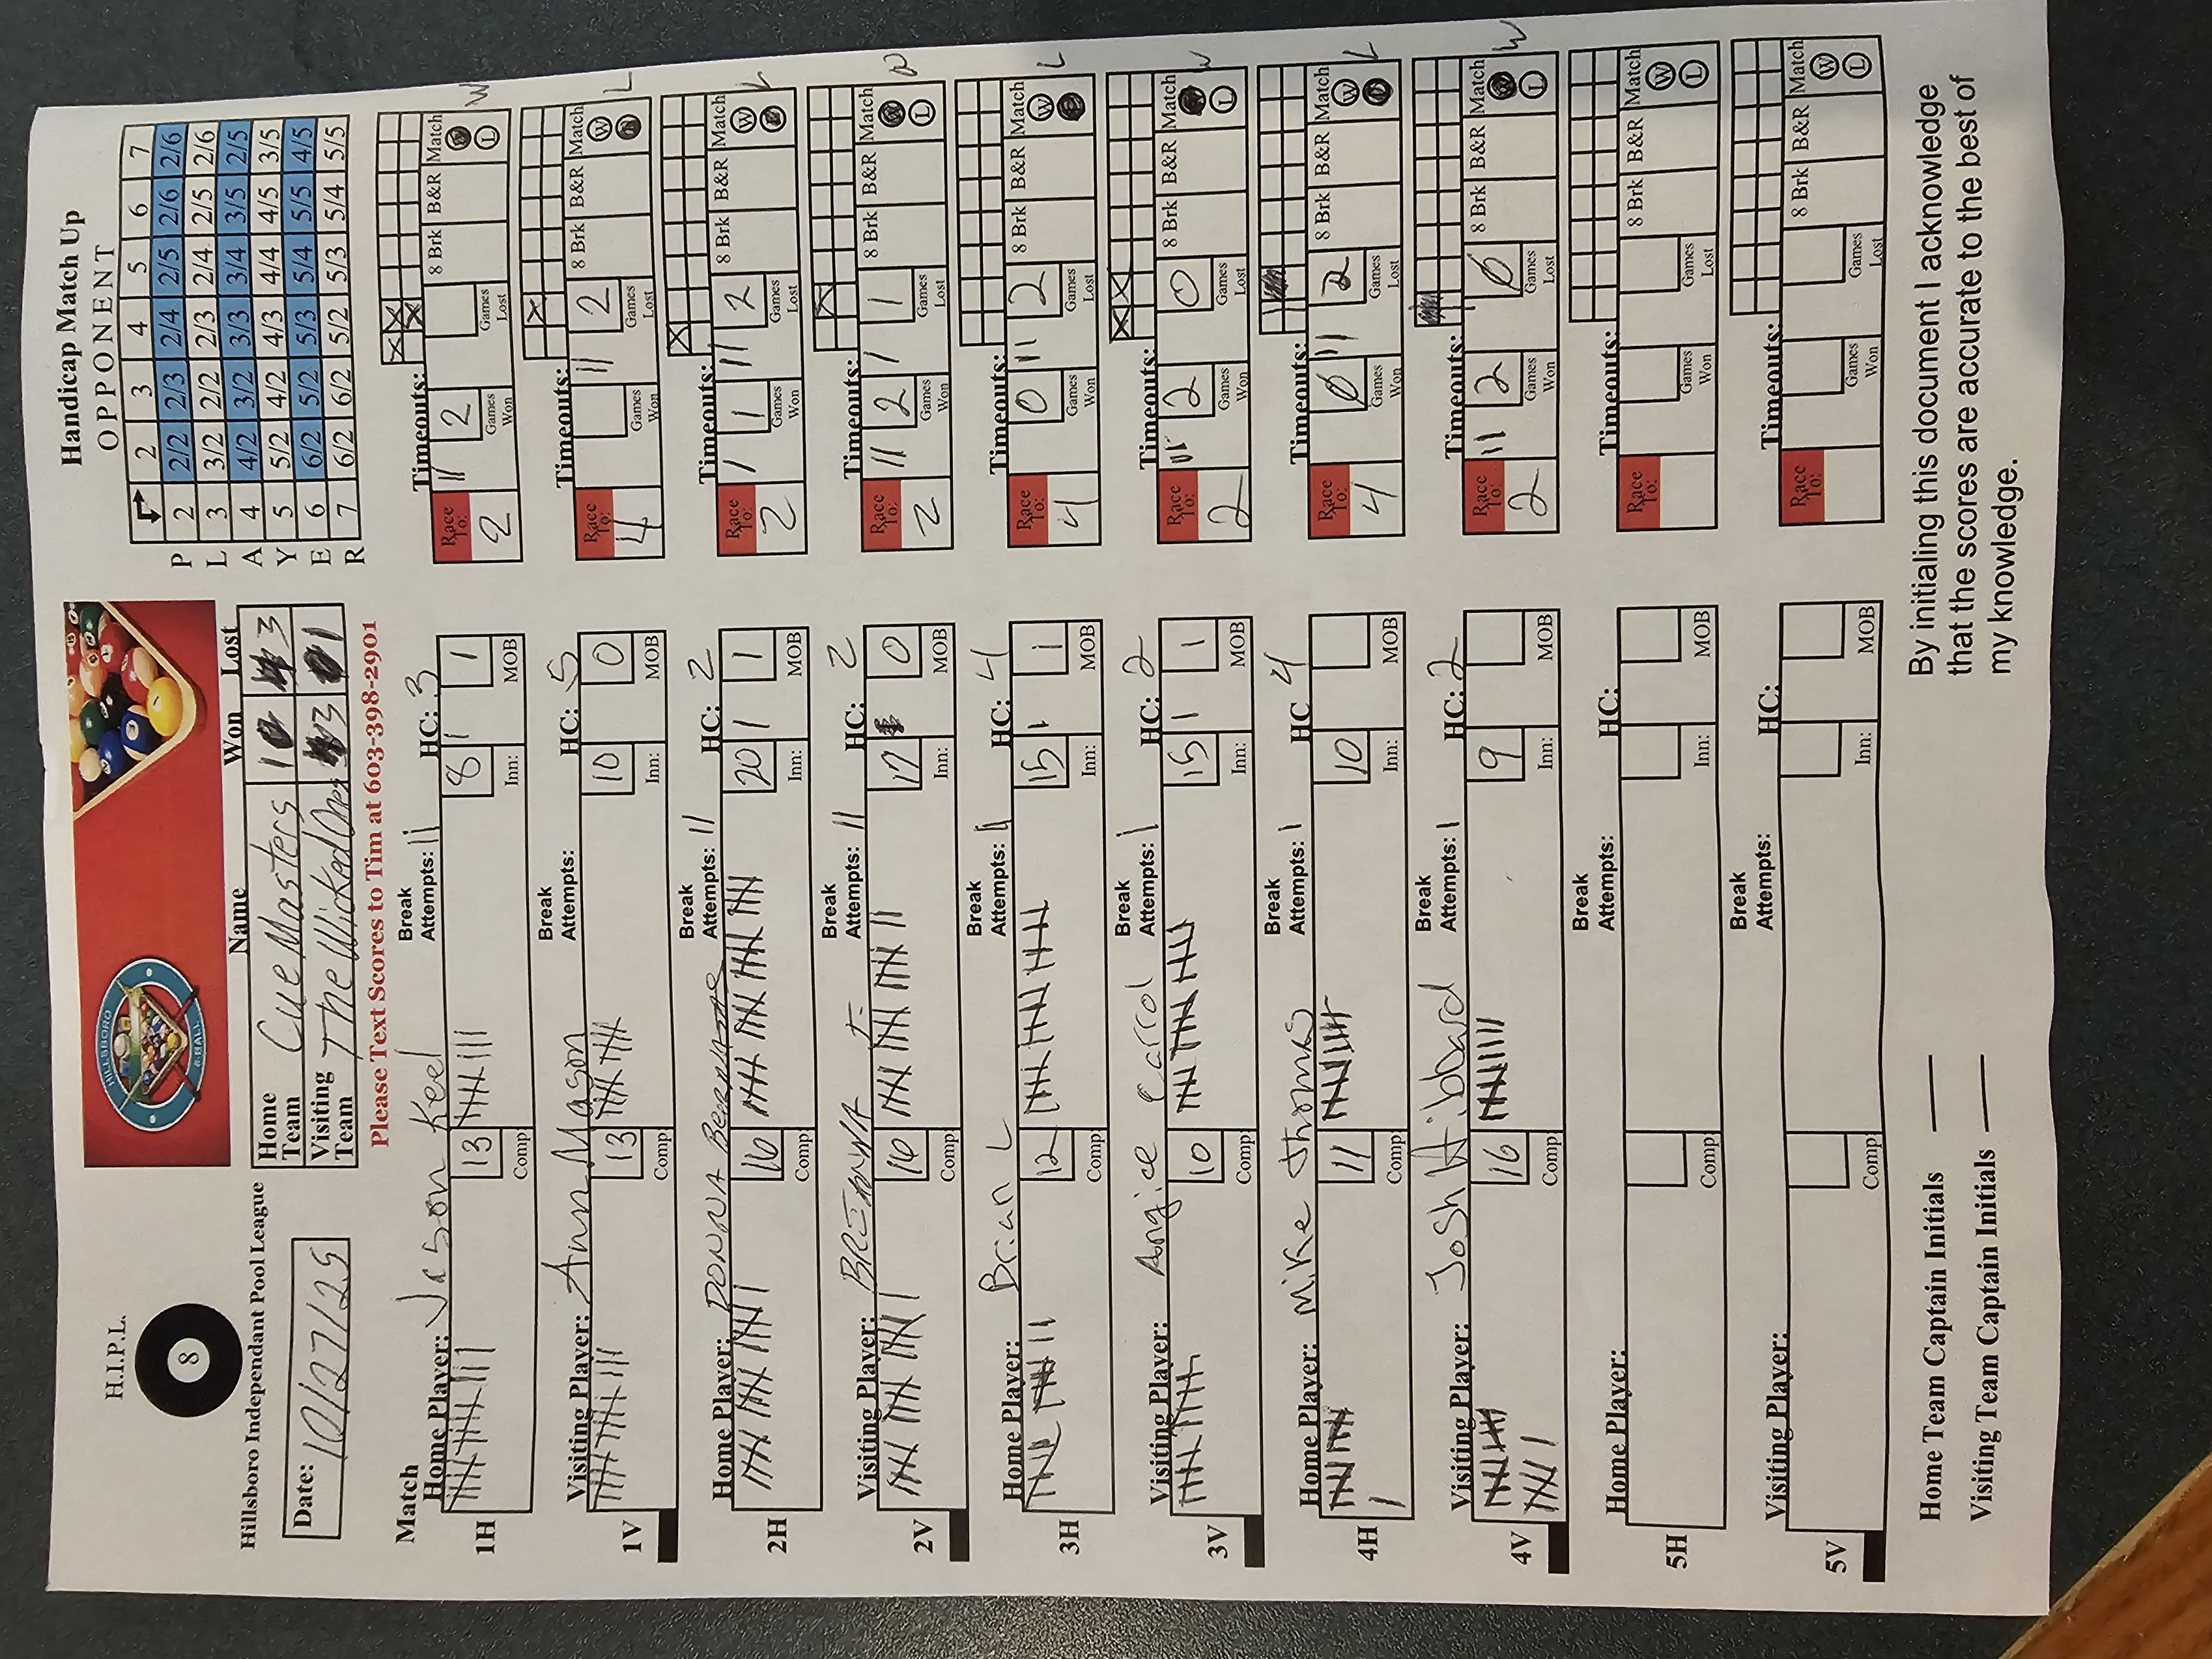 H.I.P.L.
8
Hillsboro Independant Pool League
Date: 10/27/25
HILLSBORO
8-BALL
Name Won Lost
Home Team Cue Masters 1 3
Visiting Team The Wicked Ones 3 1
Please Text Scores to Tim at 603-398-2901
Handicap Match Up
OPPONENT
2 3 4 5 6 7
P 2 2/2 2/3 2/4 2/5 2/6 2/6
L 3 3/2 2/2 2/3 2/4 2/5 2/6
A 4 4/2 3/2 3/3 3/4 3/5 2/5
Y 5 5/2 4/2 4/3 4/4 4/5 3/5
E 6 6/2 5/2 5/3 5/4 5/5 4/5
R 7 6/2 6/2 5/2 5/3 5/4 5/5
Match
Home Player: Jason Keel Break Attempts: 11 HC: 3 Timeouts: X X X
1H 13 Comp 8 Inn: 1 1 MOB Race To: 2 11 2 Games Won Games Lost 8 Brk B&R Match W L W
Visiting Player: Ann Mason Break Attempts: HC: 5 Timeouts: X
1V 13 Comp 10 Inn: 0 MOB Race To: 4 Games Won 11 2 Games Lost 8 Brk B&R Match W L
Home Player: DONNA Break Attempts: 11 HC: 2 Timeouts: X
2H 16 Comp 20 Inn: 1 1 MOB Race To: 2 1 1 Games Won 11 2 Games Lost 8 Brk B&R Match W L
Visiting Player: F. Break Attempts: 11 HC: 2 Timeouts:
2V 16 Comp 17 Inn: 0 MOB Race To: 2 11 2 Games Won 1 1 Games Lost 8 Brk B&R Match W L
Home Player: Brian L Break Attempts: HC: 4 Timeouts:
3H 12 Comp 15 Inn: 1 1 MOB Race To: 4 0 Games Won 11 2 Games Lost 8 Brk B&R Match W L
Visiting Player: Angie Carrol Break Attempts: 1 HC: 2 Timeouts: X X
3V 10 Comp 15 Inn: 1 1 MOB Race To: 2 11 2 Games Won 0 Games Lost 8 Brk B&R Match W L W
Home Player: Mike Thomas Break Attempts: 1 HC 4 Timeouts:
4H 11 Comp 10 Inn: MOB Race To: 4 0 Games Won 11 2 Games Lost 8 Brk B&R Match W L
Visiting Player: Josh Hibbard Break Attempts: 1 HC: 2 Timeouts:
4V 16 Comp 9 Inn: MOB Race To: 2 11 2 Games Won 0 Games Lost 8 Brk B&R Match W L W
Home Player: Break Attempts: HC: Timeouts:
5H Comp Inn: MOB Race To: Games Won Games Lost 8 Brk B&R Match W L
Visiting Player: Break Attempts: HC: Timeouts:
5V Comp Inn: MOB Race To: Games Won Games Lost 8 Brk B&R Match W L
Home Team Captain Initials
Visiting Team Captain Initials
By initialing this document I acknowledge
that the scores are accurate to the best of
my knowledge.